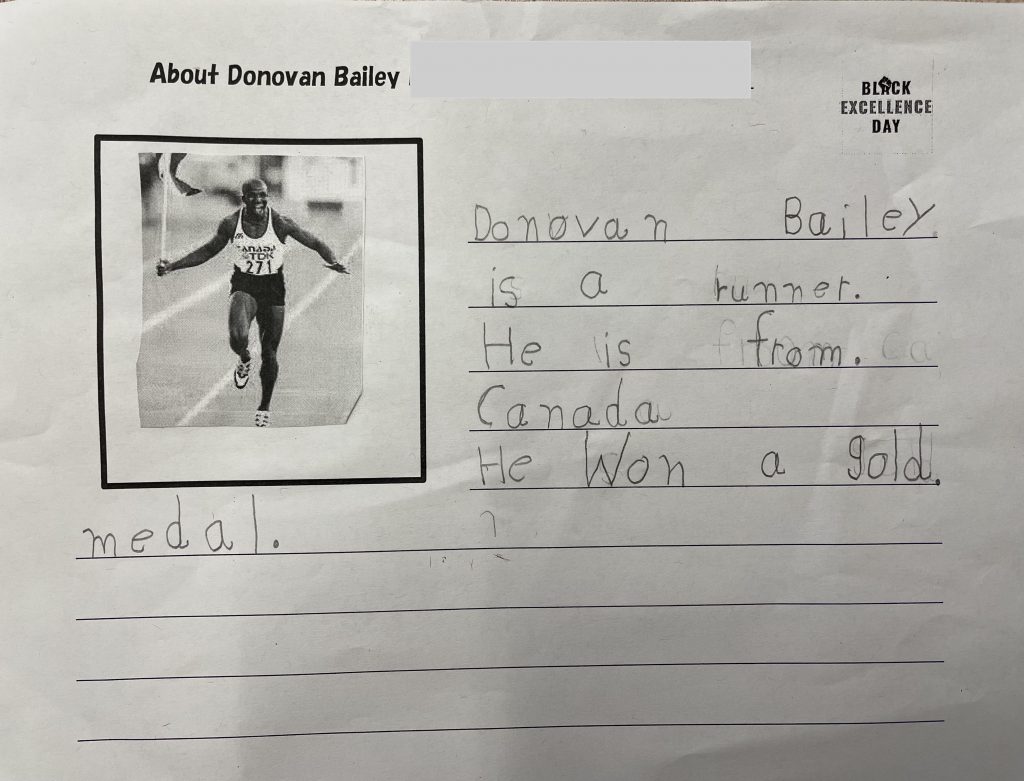 About Donovan Bailey
BLACK
EXCELLENCE
DAY
CANADA
TDK
271
Donovan Bailey
is a runner.
He is from.
Canada
He Won a gold.
medal.